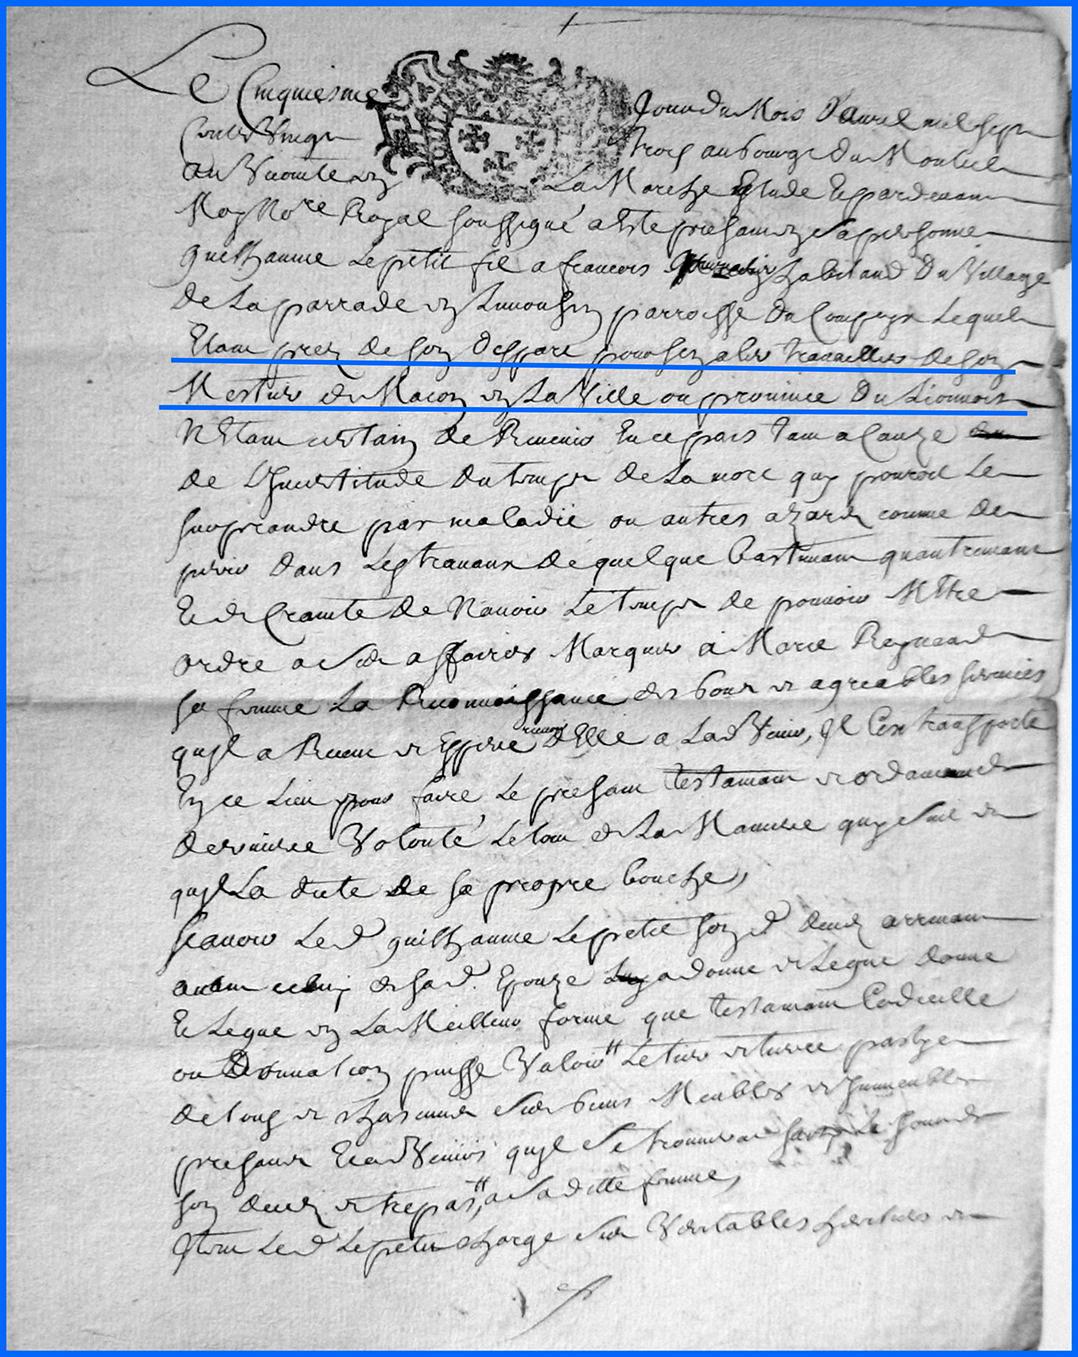 Le Cinquiesme Jour du Mois D'auril mil sept
Cents Vingt trois au bourg du Moutier
au Vicomte en La Marche Etude Et pardeuant
Moy No.re Royal soussigné a Este presant en sa personne
Guilhaume Lepetit fil a francois habitand Du Village
de La parrade en Limousin parroisse Du Compeyx Lequel
Etant prez de son deppart pour sen aler trauailler de son
Mestier de Macon en La Ville ou prouince Du Lionnois
N'Etant certain de Reuenir En ce pais tant a Cauze
de L'Incertitude du temps de La mort quy pouroit Le
surprandre par maladie ou autres azards comme de
perir dans Les trauaux de quelque bastimant quautremant
Et de Crainte de N'auoir Le temps de pouuoir Mettre
ordre a ses affaires Marquer a Marie Reynaud
sa femme La Reconnoissance des bons et agreables seruices
quyl a Receu et Espere d'Elle a Lad Venir, Il C'est transporté
En ce Lieu pour faire Le presant testamant et ordonnance de
derniere Volonté Le tout de La Maniere quy suit et
quyl La dite de sa propre bouche,
Scauoir Led guilhaume Lepetit son d deceds arriuant
auant celuy de sad. Epouze a donne et Legue donne
Et Legue en La Meilleure forme que testamant Codicille
ou Donnation puisse Valoir Le tiers et tierce partye
de tous et chascuns ses biens Meubles et Immeubles
presants Et aduenir quyl se trouuera Le jour de
son deceds et trepas, a sa ditte femme,
Et tout Led Lepetit charge ses Veritables heritiers et